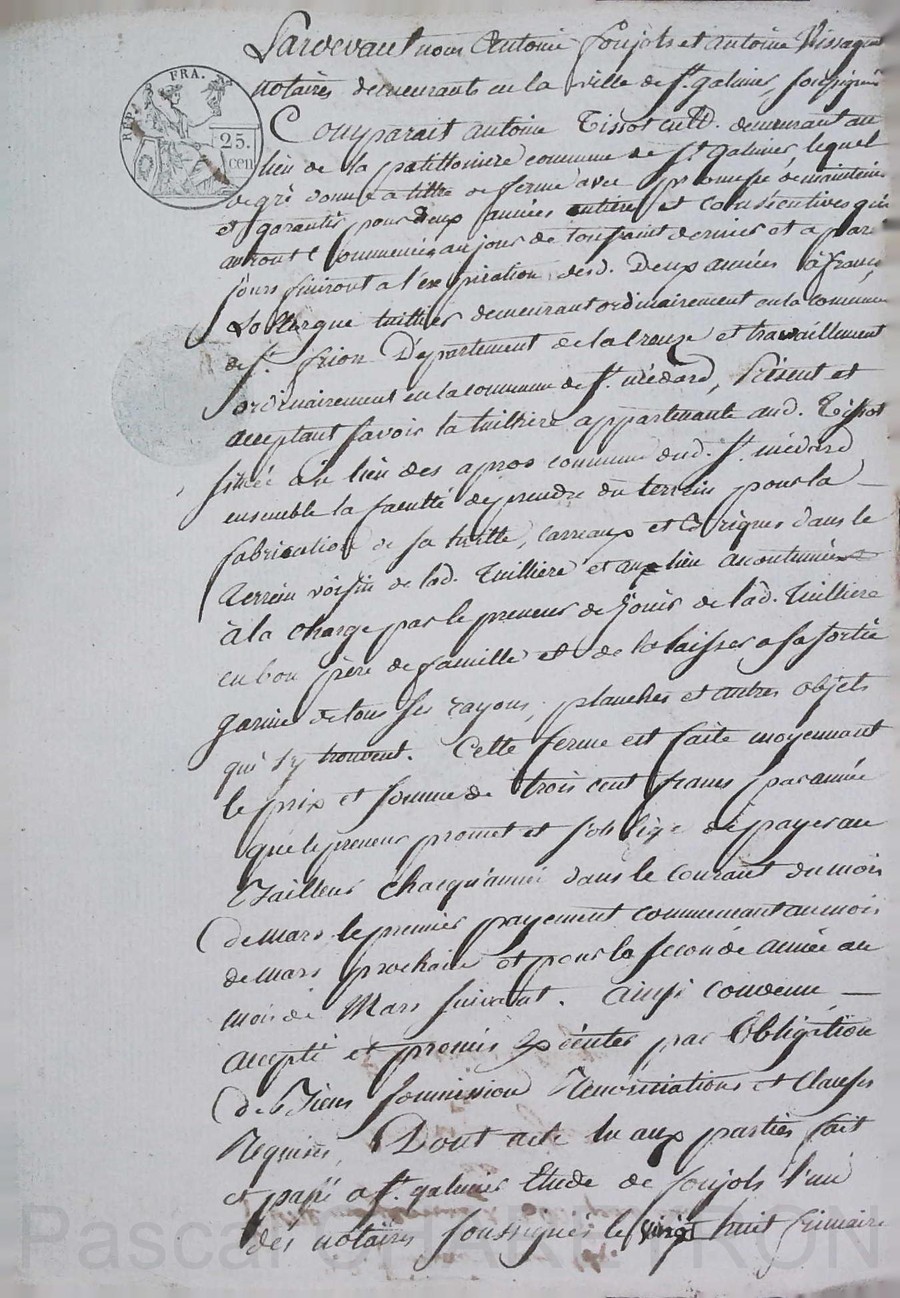 Pardevant nous Antoine Soujols et antoine Vissaguet
notaires demeurants en la ville de st. galmier, soussignés
REP. FRA.
25. cen
Comparait antoine Tissot cult. demeurant au
lieu de la commune de st. galmier lequel
de gré donne a titre de ferme avec promesse de maintenir
et garantir pour deux années entiere et consécutives qui
auront commencé au jour de toussaint dernier et a pareil
jours finiront a l'expiration desd. Deux années à
tuillier demeurant ordinairement en la commune
de st. frion Département de la Creuze et travaillement
ordinairement en la commune de st. médard, Présent et
acceptant savoir la tuilliere appartenante aud. Tissot
située au lieu des commune dud. st. médard
ensemble la faculté de prendre du terrein pour la
fabrication de sa tuille, carreaux et Briques dans le
terrein voisin de lad. Tuilliere et aux lieu acoutumés
à la charge par le preneur de Jouir de lad. Tuilliere
en bon père de famille et de la laisser a sa sortie
garnie de tous ses rayons, planches et autres objets
qui s'y trouvent. Cette ferme est faite moyennant
le prix et somme de trois cent francs par année
que le preneur promet et s'oblige de payer au
Bailleur chacqu'année dans le courant du mois
de mars le premier payement commencant au mois
de mars prochain et pour la seconde année au
mois de Mars suivant. ainsi convenu
accepté et promis Exécuter par Obligation
De Biens soumission Renonciations et Clauses
Requises, Dont acte lu aux parties fait
et passé a st. galmier Etude de Soujols l'un
des notaires soussignés le vingt huit frimaire
Pascal CHARETRON